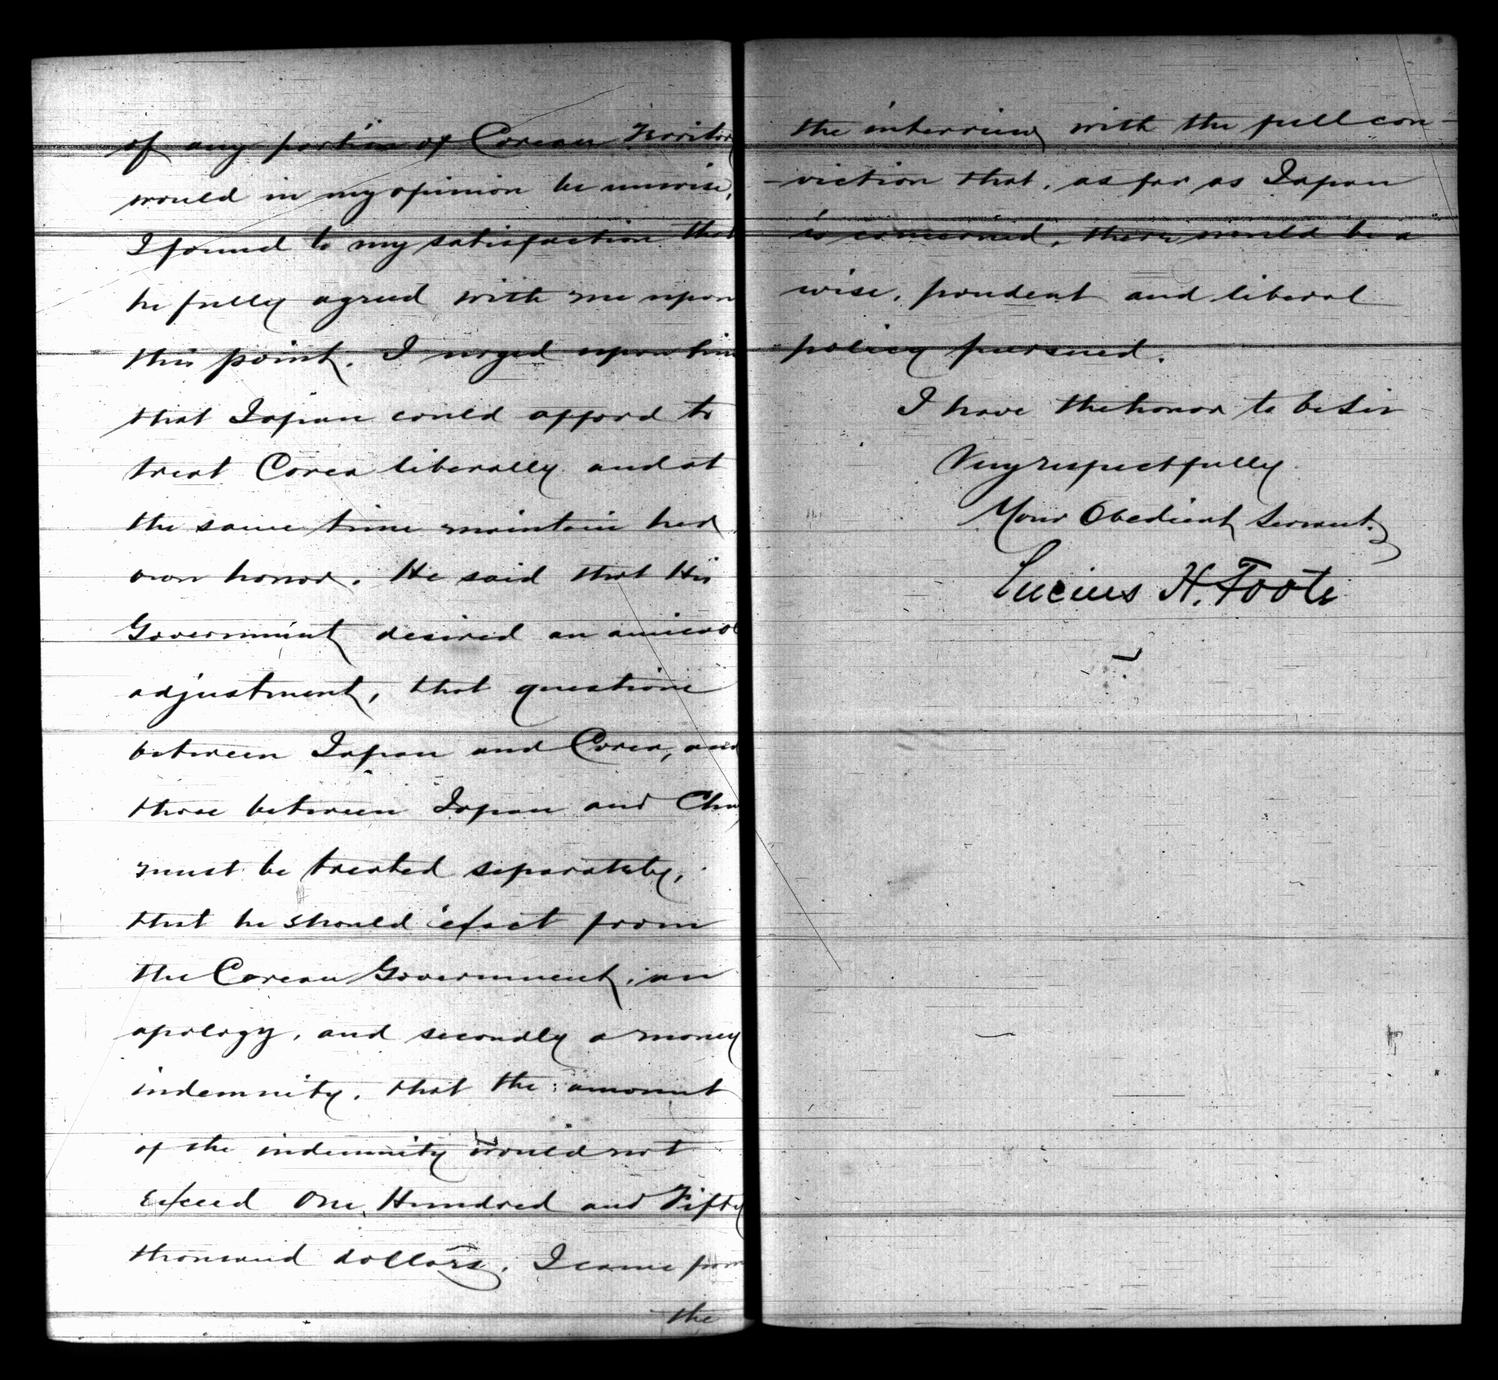 of any portion of Corean Territory
would in my opinion be unwise,
I found to my satisfaction that
he fully agreed with me upon
this point. I urged upon him
that Japan could afford to
treat Corea liberally and at
the same time maintain her
own honor. He said that His
Government desired an amicabl
adjustment, that questions
between Japan and Corea, and
those between Japan and Chin
must be treated separately,
that he should exact from
the Corean Government, an
apology, and secondly a money
indemnity, that the amount
of the indemnity would not
exceed One Hundred and Fifty
thousand dollars. I came from
the
the interview with the full con-
-viction that, as far as Japan
is concerned, there would be a
wise, prudent and liberal
policy pursued.
I have the honor to be Sir
Very respectfully
Your Obedient Servant.
Lucius H. Foote